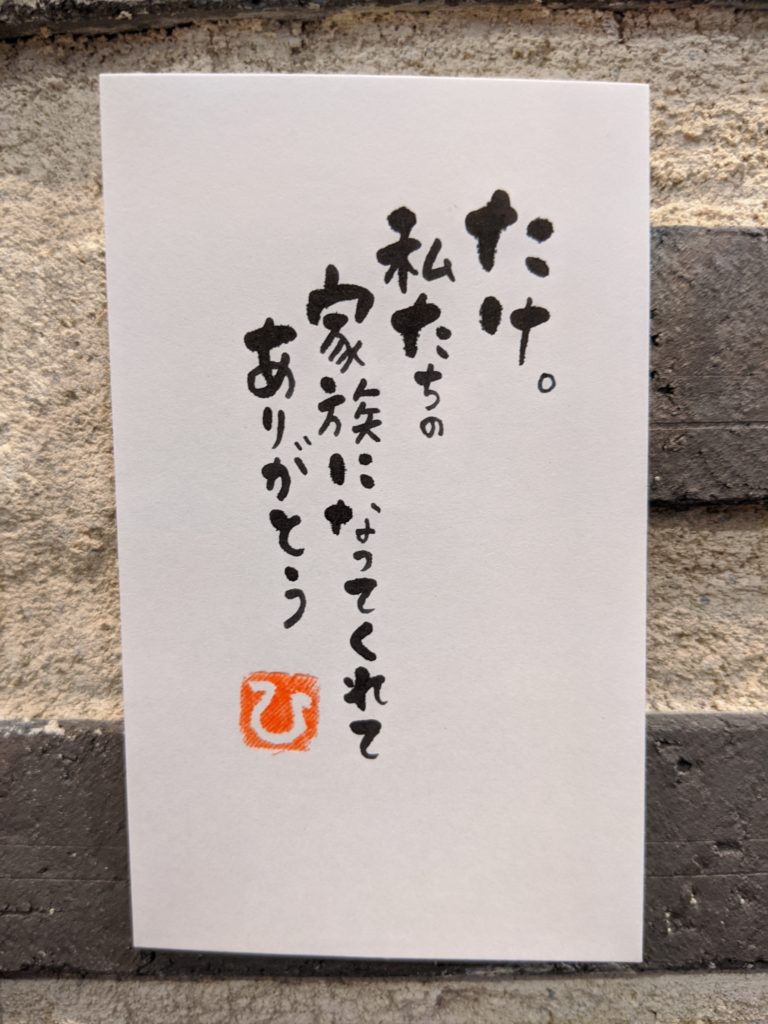 たけ。
私たちの
家族になってくれて
ありがとう
ひ